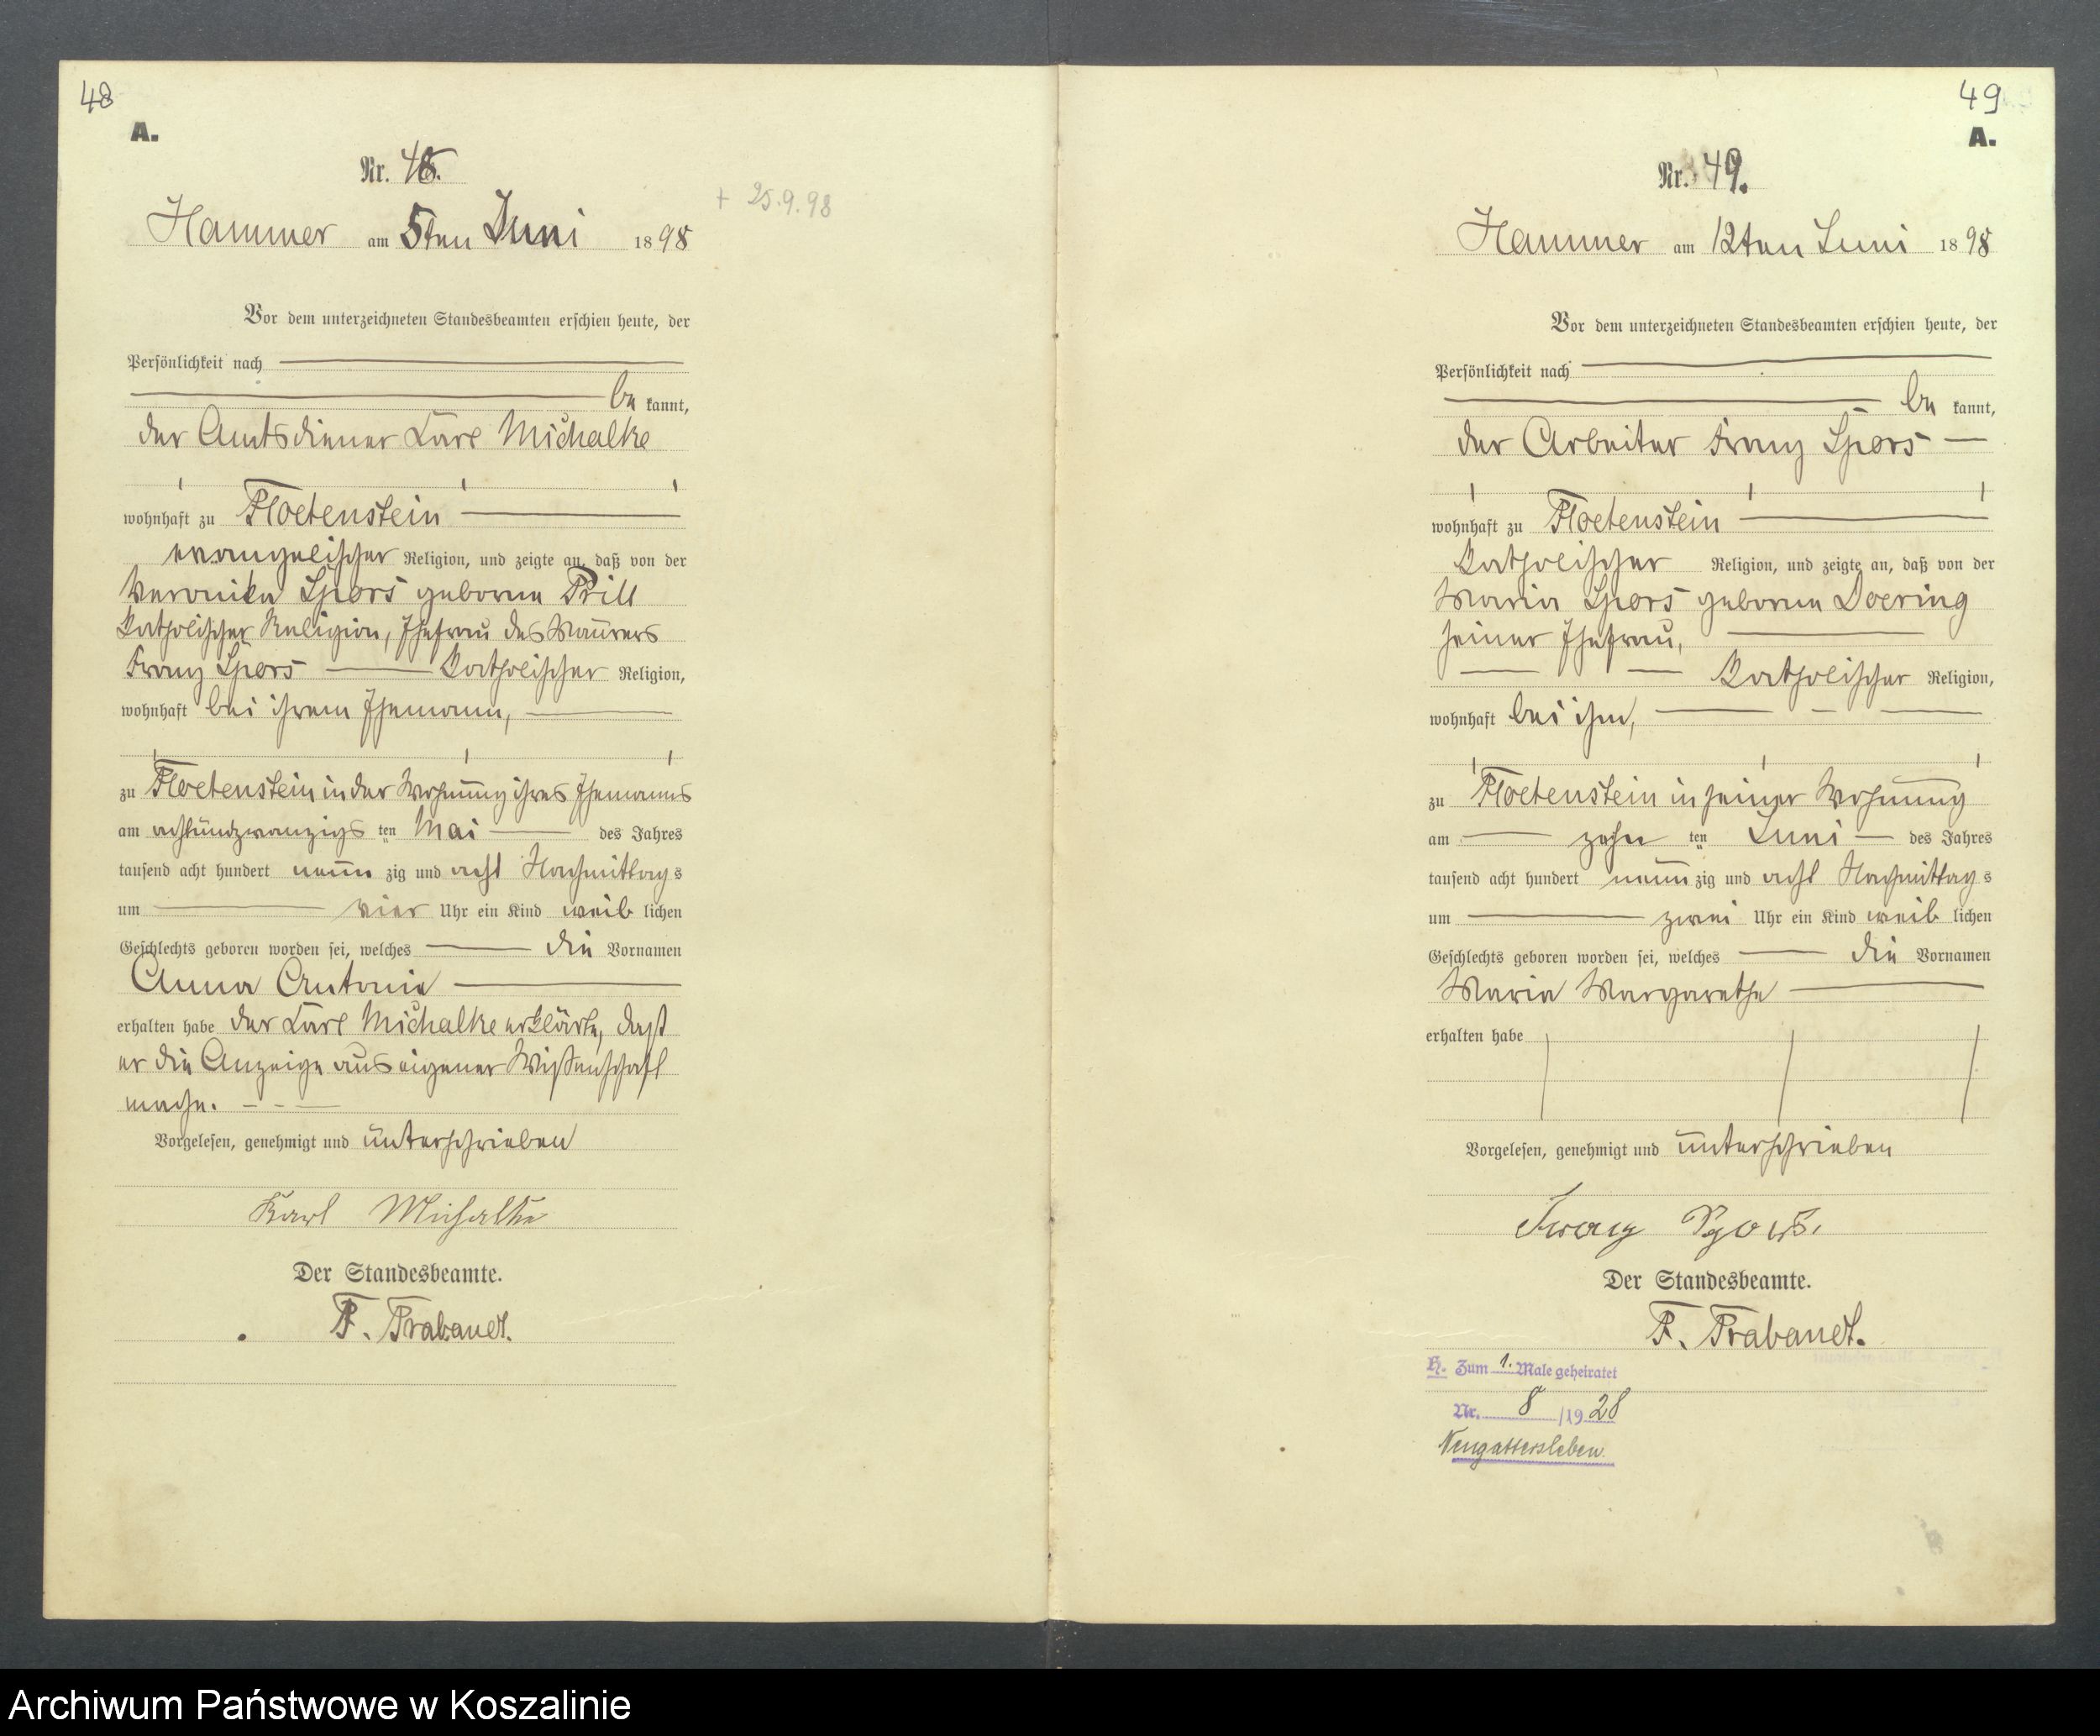 48
A.
Nr. 48.
Hammer am 5ten Juni 1898
+ 25.9.98
Vor dem unterzeichneten Standesbeamten erschien heute, der
Persönlichkeit nach
be kannt,
der Amtsdiener Carl Michalke
wohnhaft zu Floetenstein
evangelischer Religion, und zeigte an, daß von der
Veronika Spors geborene Prill
katholischer Religion, Ehefrau des Maurers
Franz Spors katholischer Religion,
wohnhaft bei ihrem Ehemann,
zu Floetenstein in der Wohnung ihres Ehemanns
am achtundzwanzigs ten Mai des Jahres
tausend acht hundert neun zig und acht Nachmittag s
um vier Uhr ein Kind weib lichen
Geschlechts geboren worden sei, welches die Vornamen
Anna Antonie
erhalten habe der Carl Michalke erklärte, daß
er die Anzeige aus eigener Wissenschaft
mache.
Vorgelesen, genehmigt und unterschrieben
Karl Michalke
Der Standesbeamte.
F. Trabandt.
49
A.
Nr. 49.
Hammer am 12ten Juni 1898
Vor dem unterzeichneten Standesbeamten erschien heute, der
Persönlichkeit nach
be kannt,
der Arbeiter Franz Spors
wohnhaft zu Floetenstein
katholischer Religion, und zeigte an, daß von der
Maria Spors geborene Doering
seiner Ehefrau,
katholischer Religion,
wohnhaft bei ihm,
zu Floetenstein in seiner Wohnung
am zehn ten Juni des Jahres
tausend acht hundert neun zig und acht Nachmittag s
um zwei Uhr ein Kind weib lichen
Geschlechts geboren worden sei, welches die Vornamen
Maria Margarethe
erhalten habe
Vorgelesen, genehmigt und unterschrieben
Franz Spors.
Der Standesbeamte.
F. Trabandt.
H. Zum 1. Male geheiratet
Nr. 8 /1928
Neugattersleben.
Archiwum Państwowe w Koszalinie